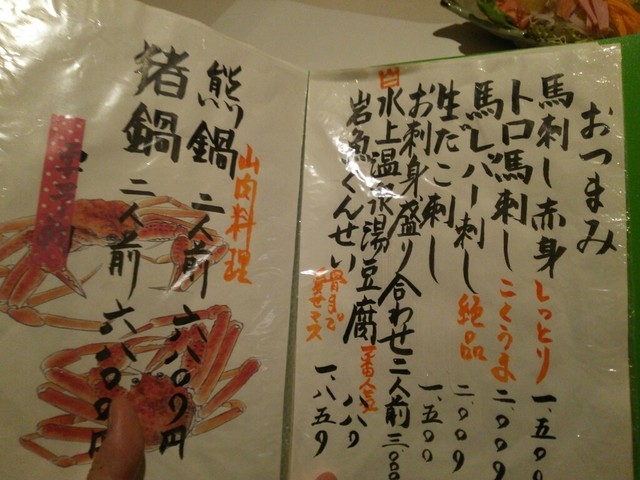 おつまみ
馬刺し赤身 しっとり 一、五〇〇
トロ馬刺し こくうま 二、〇〇〇
馬レバー刺し 絶品 二〇〇〇
生だこ刺し 一、五〇〇
お刺身盛り合わせ二人前 三、〇〇
水上温泉湯豆腐 一番人気 八八〇
岩魚くんせい 骨まで 食せマス 一、八五〇
山肉料理
熊鍋 二人前 六、八〇〇円
猪鍋 二人前 六、八〇〇円